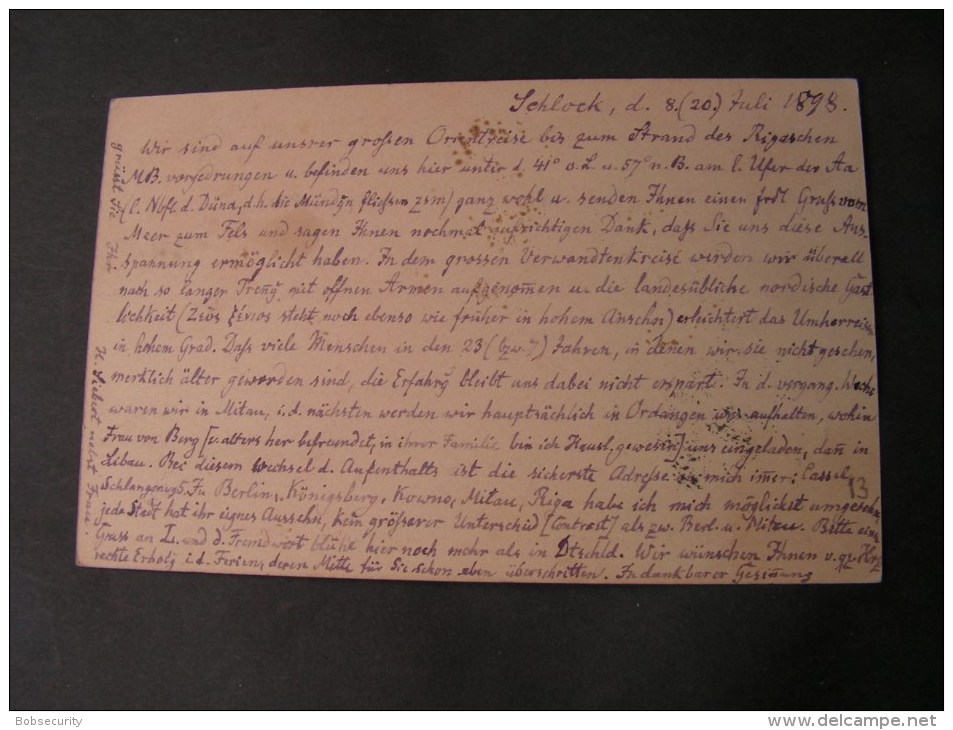 Schlock, d. 8.(20.) Juli 1898.
Wir sind auf unsrer großen Orientreise bis zum Strand des Rigaschen
MB. vorgedrungen u. befinden uns hier unter d. 41° ö.L. u. 57° n.B. am l. Ufer der Aa
(l. Nbfl. d. Düna, d.h. die Mündgn fließen zsm) ganz wohl u. senden Ihnen einen frdl. Gruß vom
Meer zum Fels und sagen Ihnen nochmal aufrichtigen Dank, daß Sie uns diese Aus-
spannung ermöglicht haben. In dem grossen Verwandtenkreise werden wir überall
nach so langer Trenng mit offnen Armen aufgenom̄en u. die landesübliche nordische Gast
lichkeit (Ζεὺς ξένιος steht noch ebenso wie früher in hohem Ansehn) erleichtert das Umherreisen
in hohem Grad. Daß viele Menschen in den 23 (bzw. 7) Jahren, in denen wir sie nicht gesehen,
merklich älter geworden sind, die Erfahrg bleibt uns dabei nicht erspart. In d. vergang. Woche
waren wir in Mitau, i. d. nächsten werden wir hauptsächlich in Ordangen uns aufhalten, wohin
Frau von Berg [v. alters her befreundet, in ihrer Familie bin ich Hausl. gewesen] uns eingeladen, dan̄ in
Libau. Bei diesem Wechsel d. Aufenthalts ist die sicherste Adresse an mich im̄er: Cassel,
Schlangenweg 5. In Berlin, Königsberg, Kowno, Mitau, Riga habe ich mich möglichst umgesehn,
jede Stadt hat ihr eignes Aussehn, kein größerer Unterschied [Contrast] als zw. Berl. u. Mitau. Bitte einen
Gruss an L. und d. Fremdwort blühe hier noch mehr als in Dtschld. Wir wünschen Ihnen v. gz. Hrz
rechte Erholg i. d. Ferien, deren Mitte für Sie schon eben überschritten. In dankbarer Gesin̄ung
grüsst Sie Ihr
H. Siebert nebst Frau.
13
Bobsecurity
www.delcampe.net